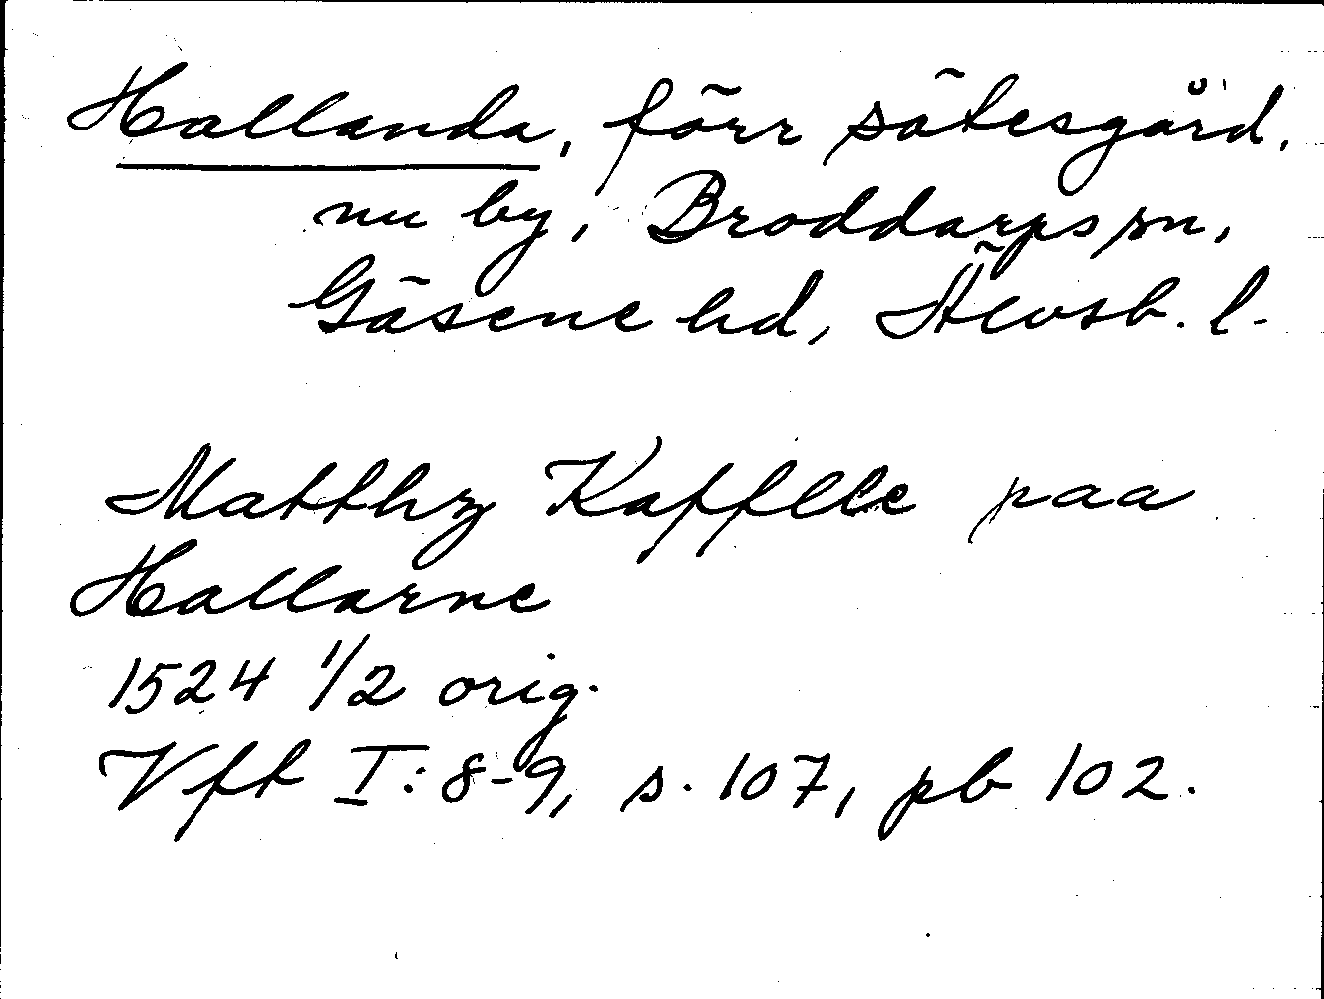 Hallanda, förr sätesgård,
nu by, Broddarps sn,
Gäsene hd, Älvsb. l.
Matthz Kaffle paa
Hallarne
1524 1/2 orig.
Vft I:8-9, s. 107, pb 102.